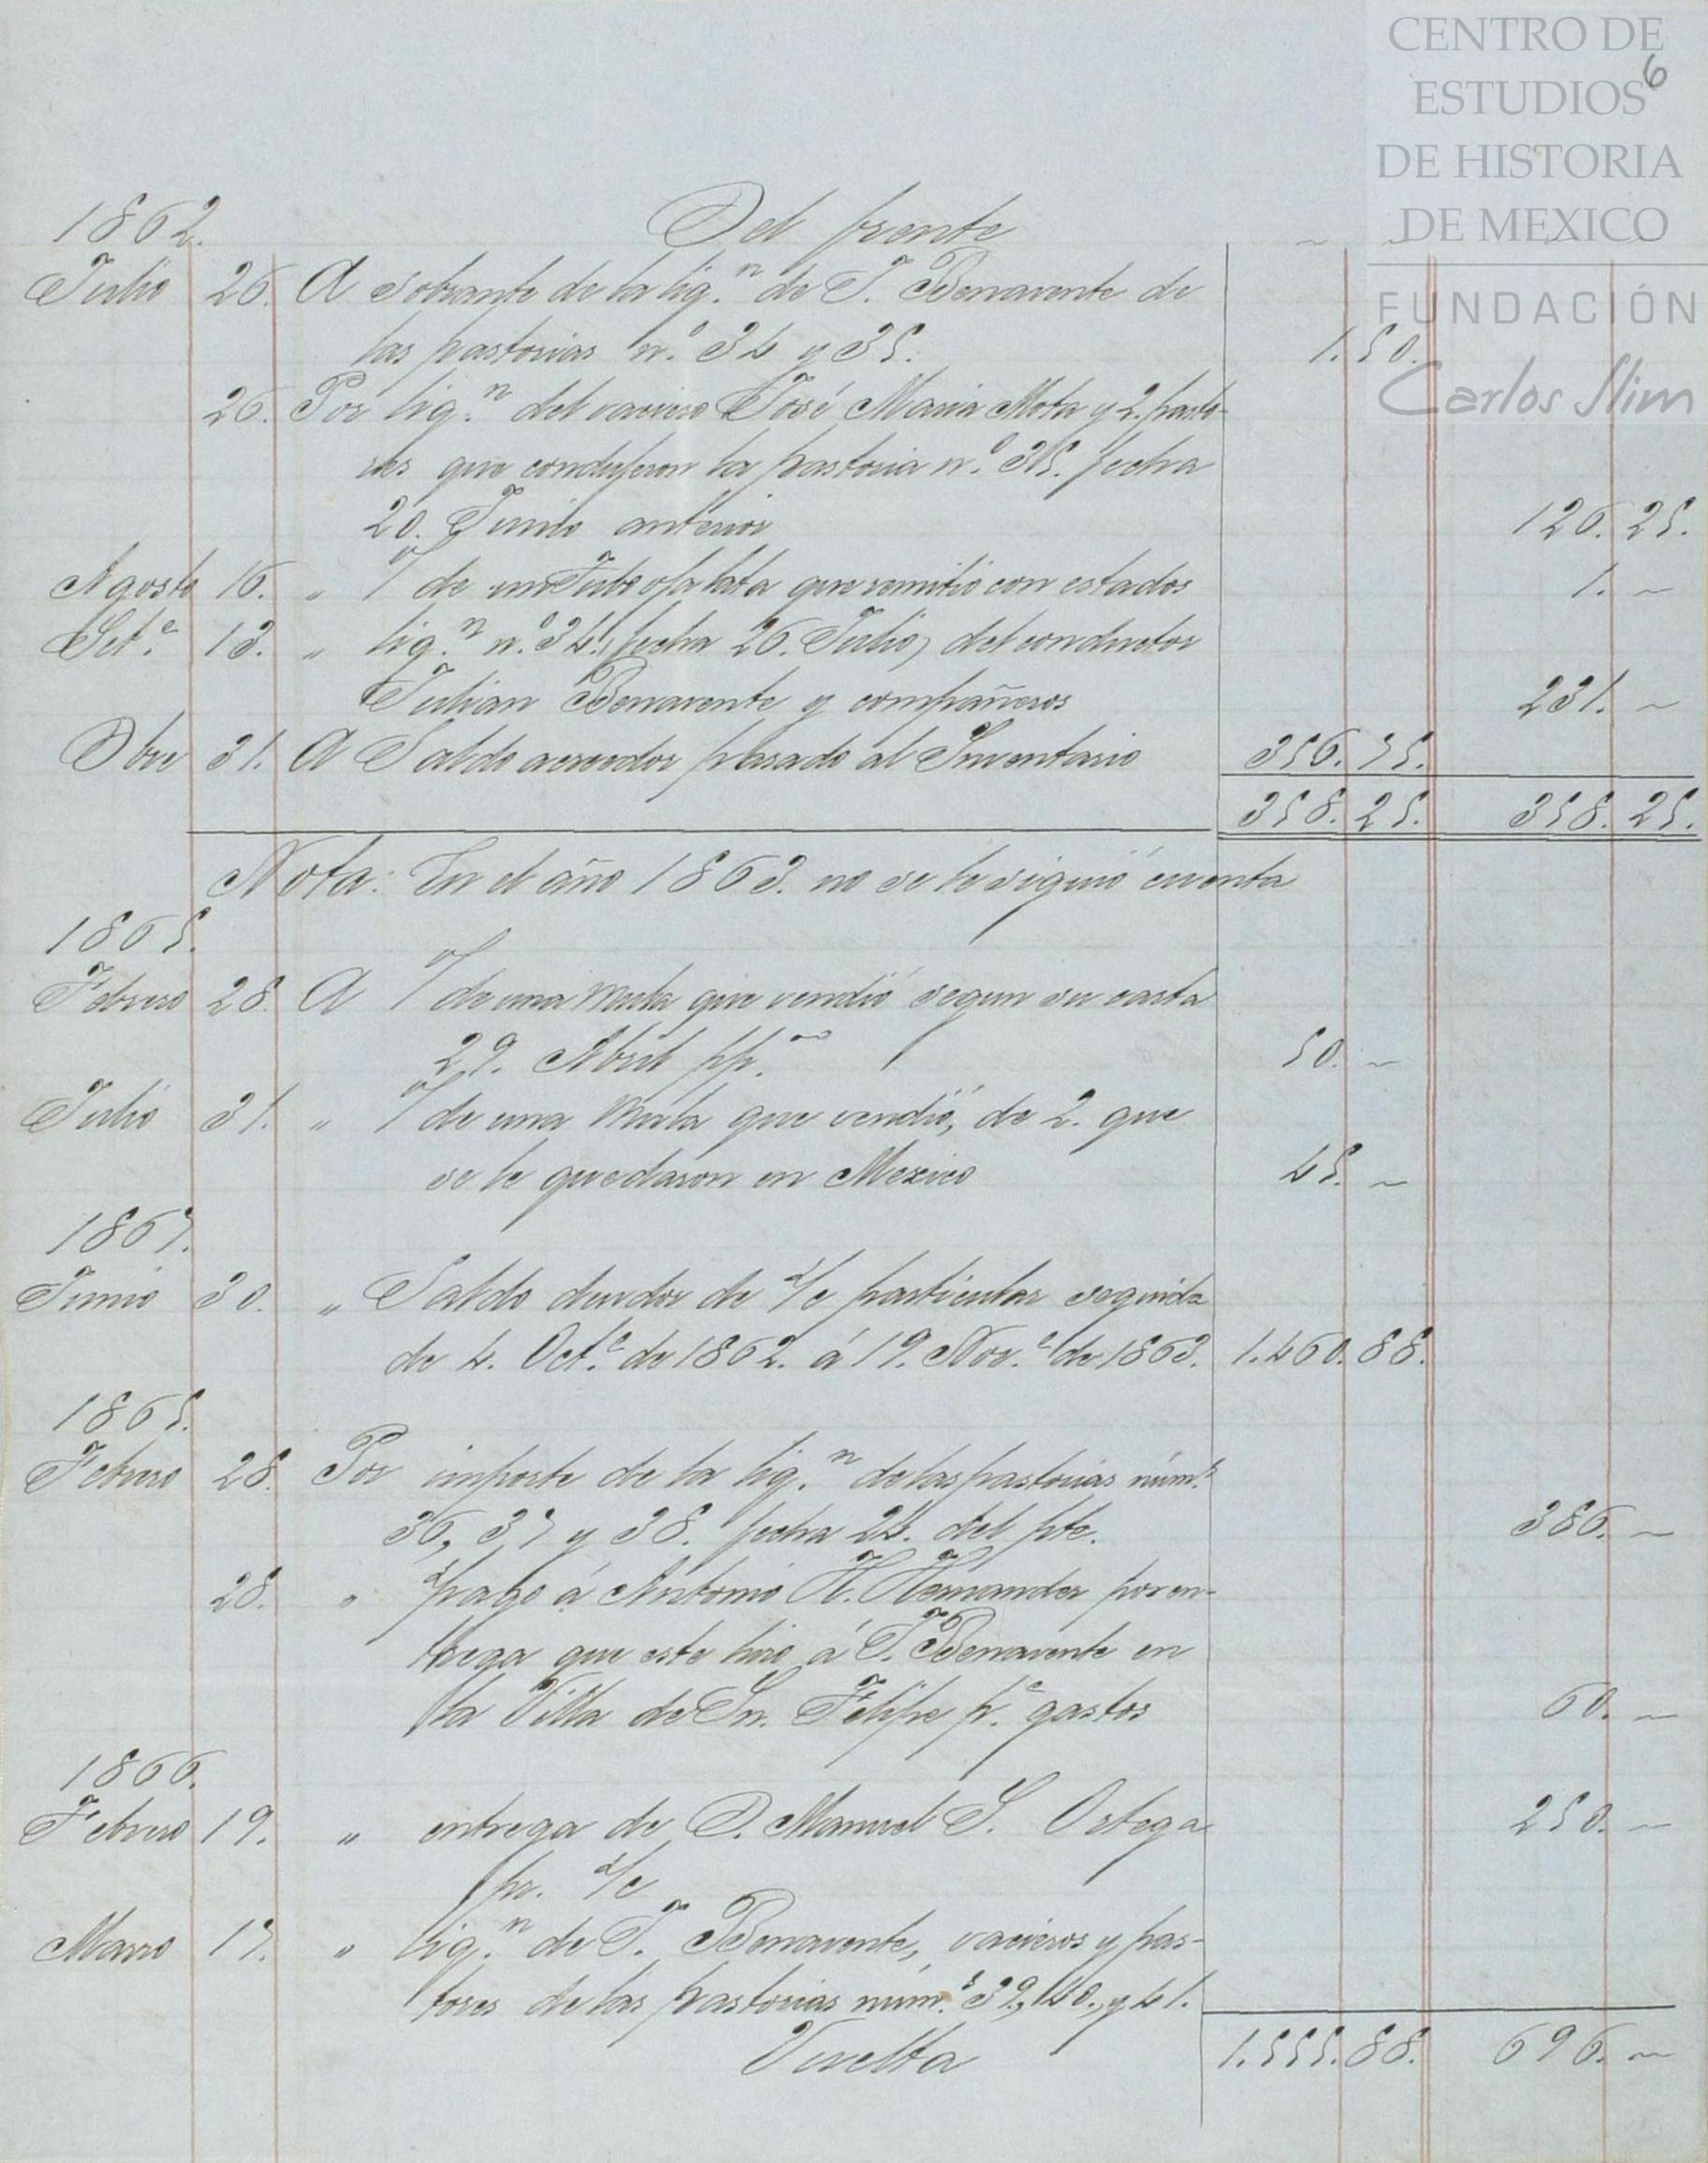 CENTRO DE
ESTUDIOS
DE HISTORIA
DE MEXICO
FUNDACIÓN
Carlos Slim
6
1862. Del frente ~ ~ ~ ~
Julio 26. A Sobrante de la liq.n de J. Benavente de
las pastorias n.o 34 y 35. 1.50.
26. Por liq.n del vaciero José Maria Mota y 2. pasto-
res que condujeron la pastoria n.o 35. fecha
20. Junio anterior 126.25.
Agosto 16. " de un Tubo ojalata que remitió con estados 1. ~
Set.e 13. " liq.n n.o 34. (fecha 26. Julio) del conductor
Julian Benavente y compañeros 231. ~
Dbre 31. A Saldo acreedor pasado al Inventario 356.75.
358.25. 358.25.
Nota: En el año 1863. no se le siguió cuenta
1865.
Febrero 28. A de una Mula que vendió segun su carta
29. Abril pp.do 50. ~
Julio 31. " de una Mula que vendió, de 2. que
se le quedaron en Mexico 45. ~
1867.
Junio 30. " Saldo deudor de s/c particular seguida
de 4. Oct.e de 1862. á 19. Nov.e de 1863. 1.460.88.
1865.
Febrero 28. Por importe de la liq.n de las pastorias núm.s
36, 37 y 38. fecha 24. del pte. 386. ~
28. " pago á Antonio H. Hernandez por en-
trega que este hizo á J. Benavente en
la Villa de Sn. Felipe p.a gastos 60. ~
1866.
Febrero 19. " entrega de D. Manuel S. Ortega 250. ~
pr. s/c
Marzo 17. " liq.n de J. Benavente, vacieros y pas-
tores de las pastorias núm.s 39, 40., y 41.
Vuelta 1.555.88. 696. ~